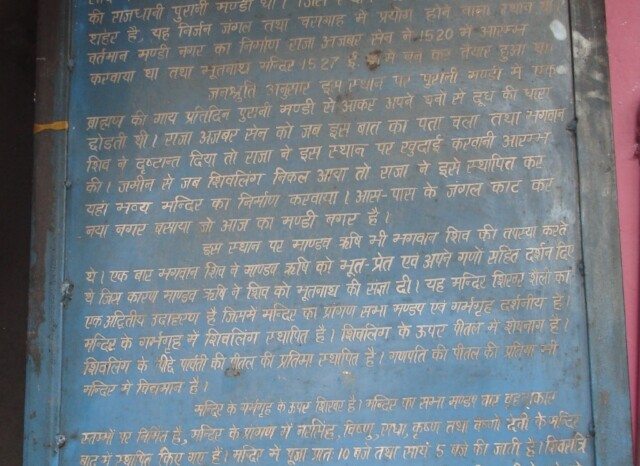 की राजधानी पुरानी मण्डी थी। जिस
शहर है, यह निर्जन जंगल तथा चरागाह में प्रयोग होने वाला स्थान था।
वर्तमान मण्डी नगर का निर्माण राजा अजबर सेन ने 1520 में आरम्भ
करवाया था तथा भूतनाथ मन्दिर 1527 ई में बन कर तैयार हुआ था।
जनश्रुति अनुसार इस स्थान पर पुरानी मण्डी में एक
ब्राह्मण की गाय प्रतिदिन पुरानी मण्डी से आकर अपने थनों से दूध की धारा
छोडती थी। राजा अजबर सेन को जब इस बात का पता चला तथा भगवान
शिव ने दृष्टान्त दिया तो राजा ने इस स्थान पर खुदाई करवानी आरम्भ
की। जमीन से जब शिवलिंग निकल आया तो राजा ने इसे स्थापित कर
यहां भव्य मन्दिर का निर्माण करवाया। आस-पास के जंगल काट कर
नया नगर बसाया जो आज का मण्डी नगर है।
इस स्थान पर माण्डव ऋषि भी भगवान शिव की तपस्या करते
थे। एक बार भगवान शिव ने माण्डव ऋषि को भूत-प्रेत एवं अपने गणों सहित दर्शन दिए
थे जिस कारण माण्डव ऋषि ने शिव को भूतनाथ की संज्ञा दी। यह मन्दिर शिखर शैली का
एक अद्वितीय उदाहरण है जिसमें मन्दिर का प्रांगण सभा मण्डप एवं गर्भगृह दर्शनीय है।
मन्दिर के गर्भगृह में शिवलिंग स्थापित है। शिवलिंग के ऊपर पीतल में शेषनाग है।
शिवलिंग के पीछे पार्वती की पीतल की प्रतिमा स्थापित है। गणपति की पीतल की प्रतिमा भी
मन्दिर में विद्यमान है।
मन्दिर के गर्भगृह के ऊपर शिखर है। मन्दिर का सभा मण्डप चार वृहदाकार
स्तम्भों पर निर्मित है, मन्दिर के प्रांगण में नरसिंह, विष्णु, राधा, कृष्ण तथा वैष्णो देवी के मन्दिर
बाद में स्थापित किए गए हैं। मन्दिर में पूजा प्रातः 10 बजे तथा सायं 5 बजे की जाती है। शिवरात्रि